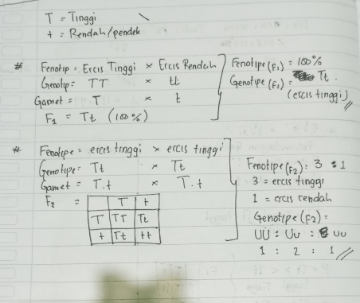 T = Tinggi
t = Rendah/pendek
* Fenotip = Ercis Tinggi × Ercis Rendah
Genotip = TT × tt
Gamet = T × t
F1 = Tt (100%)
Fenotipe (F1) = 100%
Genotipe (F1) = Tt
(ercis tinggi)
* Fenotipe = ercis tinggi × ercis tinggi
Genotipe = Tt × Tt
Gamet = T.t × T.t
F2 =
T t
T TT Tt
t Tt tt
Fenotipe (F2) : 3 : 1
3 = ercis tinggi
1 = ercis rendah
Genotipe (F2) =
UU : Uu : uu
1 : 2 : 1